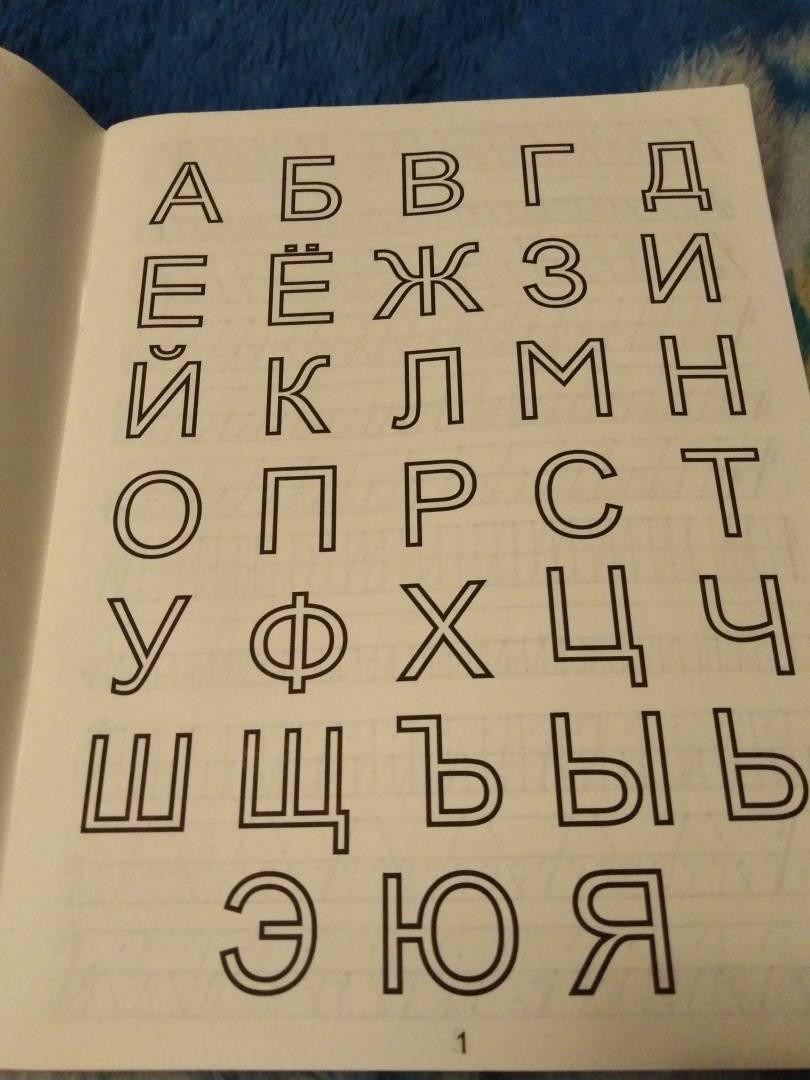 А Б В Г Д
Е Ё Ж З И
Й К Л М Н
О П Р С Т
У Ф Х Ц Ч
Ш Щ Ъ Ы Ь
Э Ю Я
1